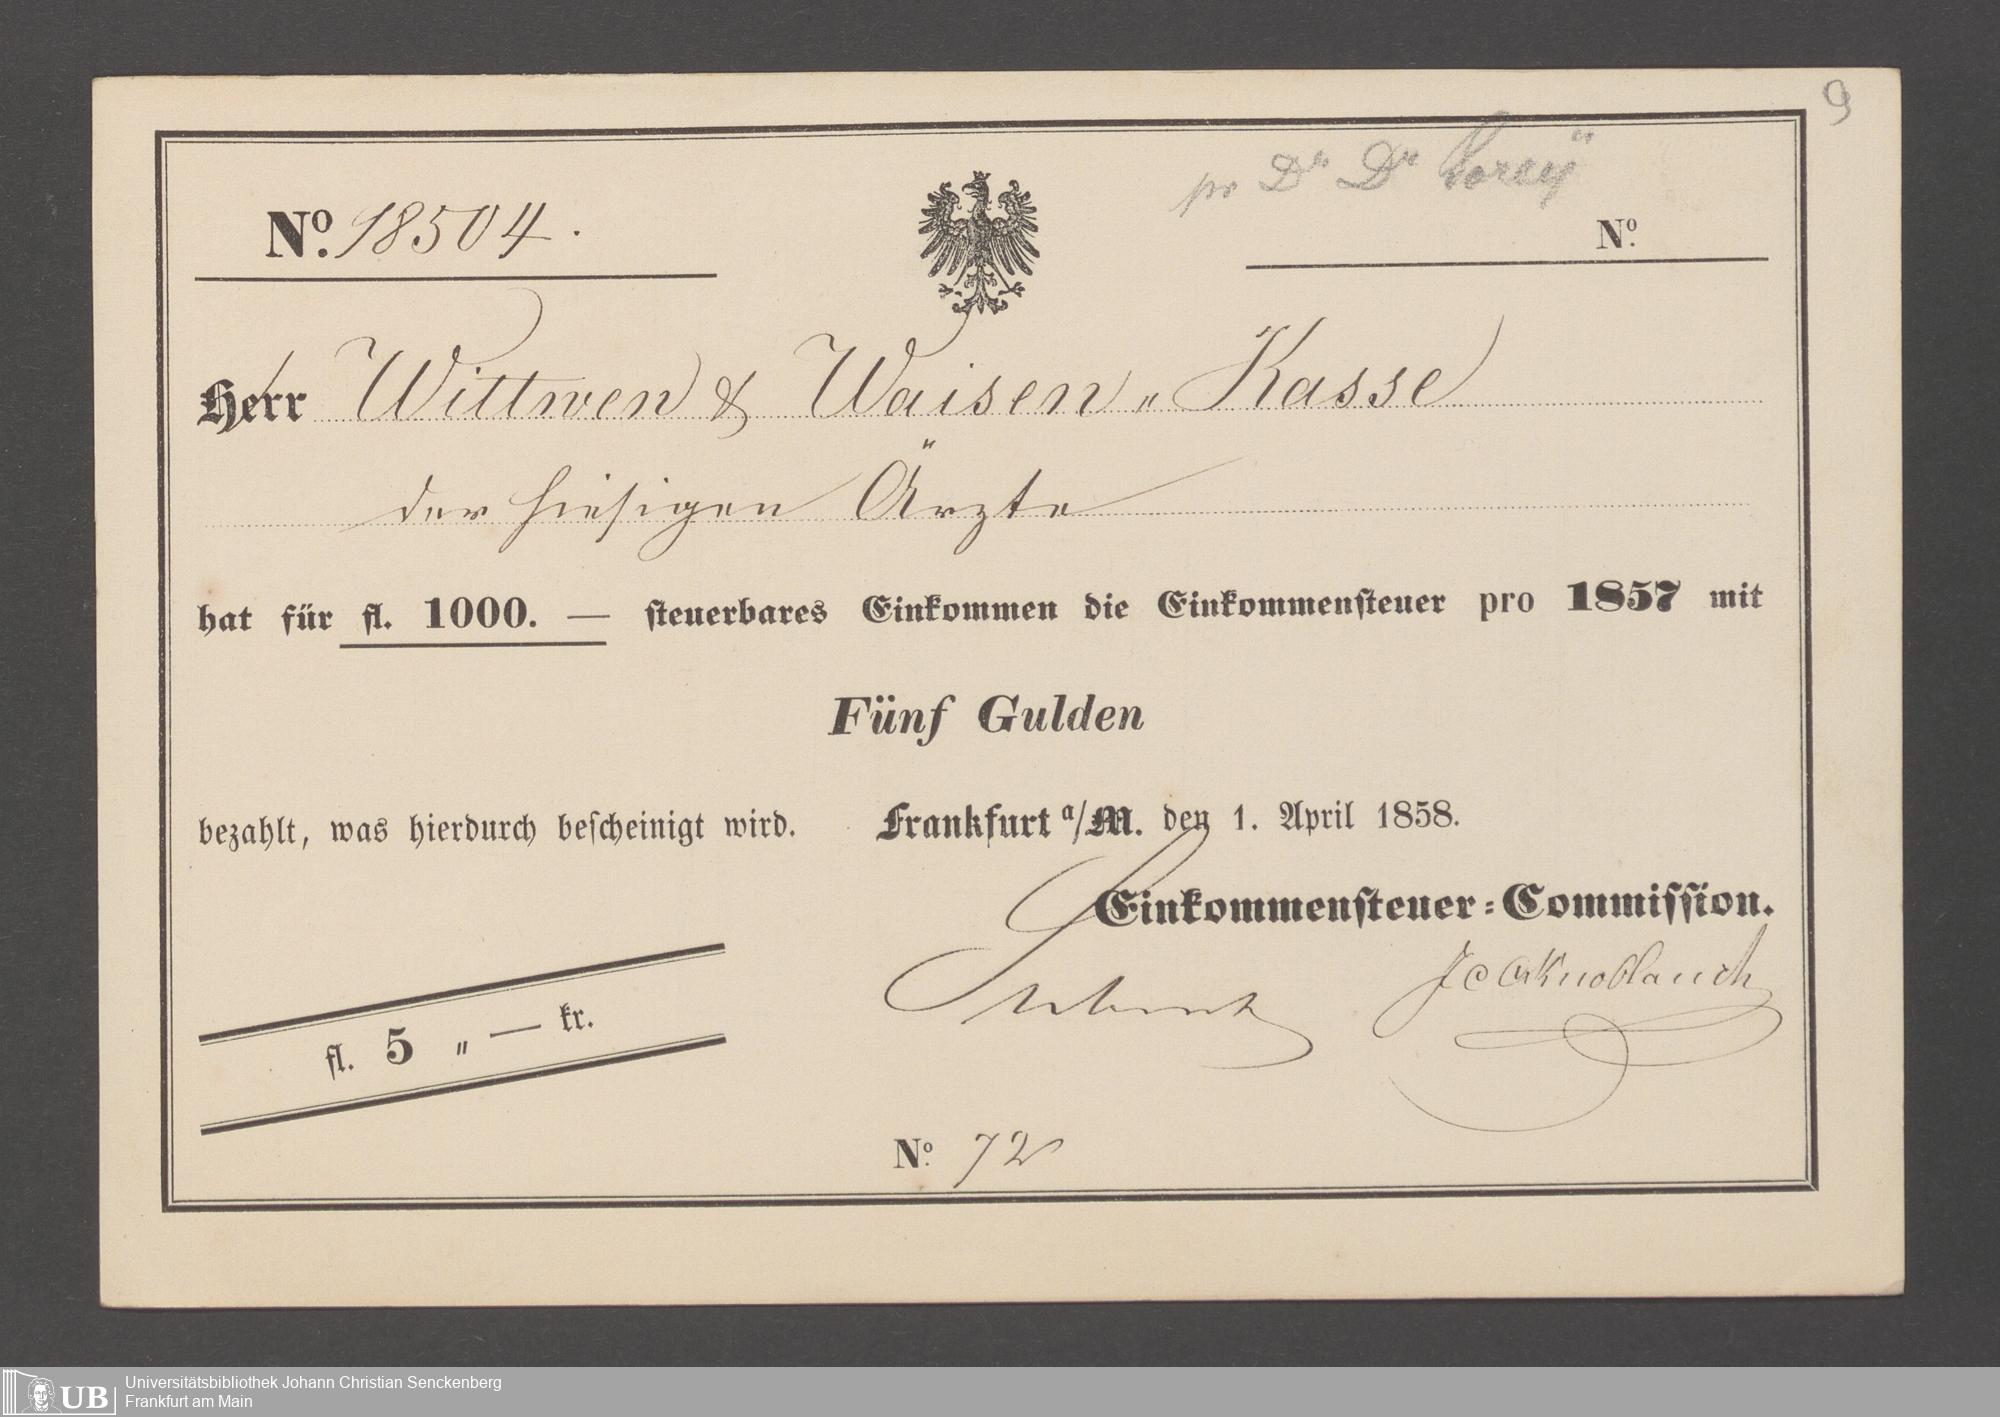 9
pr Dr. Dr.
No. 18504.
No.
Herr Wittwen & Waisen„Kasse
der hiesigen Ärzte
hat für fl. 1000. — steuerbares Einkommen die Einkommensteuer pro 1857 mit
Fünf Gulden
bezahlt, was hierdurch bescheinigt wird. Frankfurt a/M. den 1. April 1858.
Einkommensteuer=Commission.
Knoblauch
fl. 5 „ — kr.
No. 72
UB Universitätsbibliothek Johann Christian Senckenberg
Frankfurt am Main